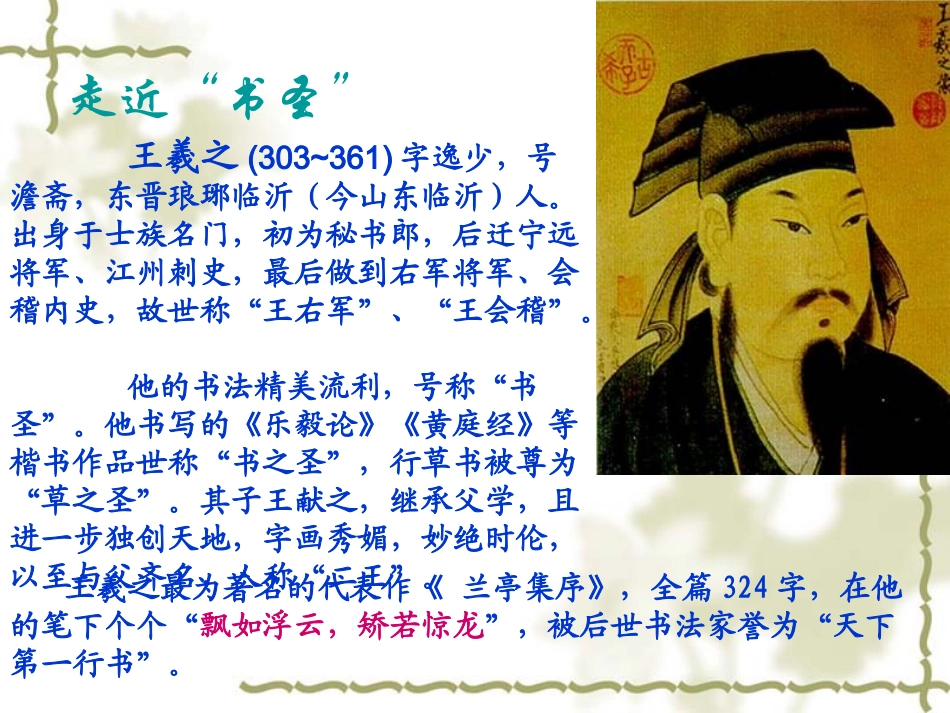 走近“书圣”
王羲之(303~361)字逸少，号
澹斋，东晋琅琊临沂（今山东临沂）人。
出身于士族名门，初为秘书郎，后迁宁远
将军、江州刺史，最后做到右军将军、会
稽内史，故世称“王右军”、“王会稽”。
他的书法精美流利，号称“书
圣”。他书写的《乐毅论》《黄庭经》等
楷书作品世称“书之圣”，行草书被尊为
“草之圣”。其子王献之，继承父学，且
进一步独创天地，字画秀媚，妙绝时伦，
以至与父齐名，人称“二王”。
王羲之最为著名的代表作《 兰亭集序》，全篇324字，在他
的笔下个个“飘如浮云，矫若惊龙”，被后世书法家誉为“天下
第一行书”。
王羲之像